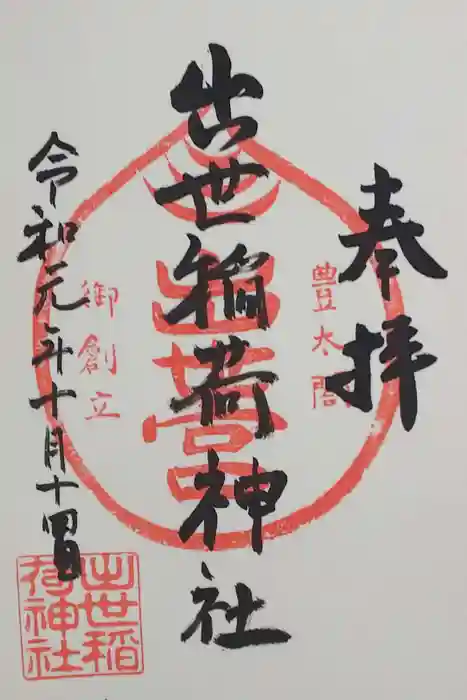 奉拝
豊太閤
出世稲荷神社
出世
御創立
令和元年十月十四日
出世稲
荷神社